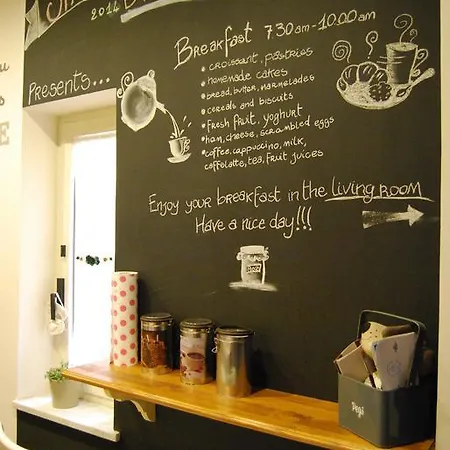 2014
Presents...
Breakfast 7.30am-10.00am
croissant, pastries
homemade cakes
bread, butter, marmelades
cereals and biscuits
Fresh fruit, yoghurt
ham, cheese, scrambled eggs
coffee, cappuccino, milk,
caffelatte, tea, fruit juices
Enjoy your breakfast in the living room
Have a nice day!!!